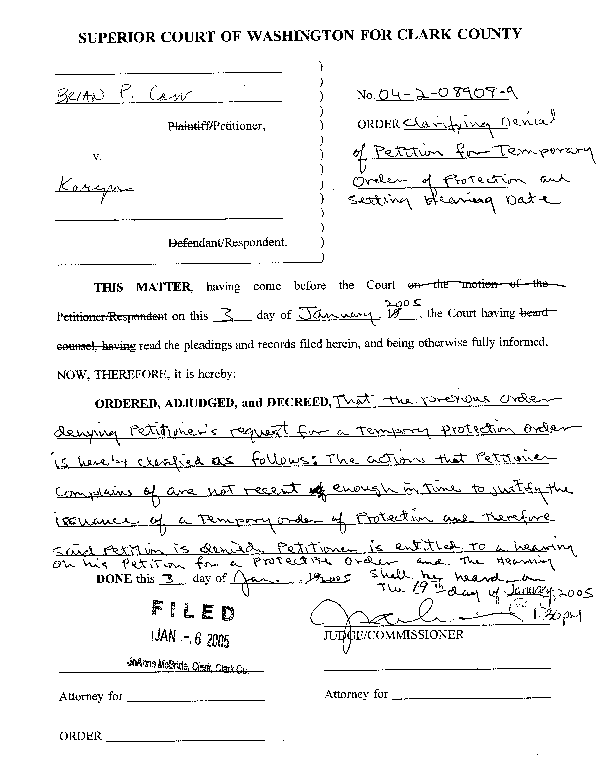 SUPERIOR COURT OF WASHINGTON FOR CLARK COUNTY
BRIAN P. Carr
Plaintiff/Petitioner,
v.
Karyn
Defendant/Respondent.
No. 04-2-08909-9
ORDER Clarifying Denial
of Petition for Temporary
Order of Protection and
Setting Hearing Date
THIS MATTER, having come before the Court on the motion of the
Petitioner/Respondent on this 3 day of January, 2005, the Court having heard
counsel, having read the pleadings and records filed herein, and being otherwise fully informed,
NOW, THEREFORE, it is hereby:
ORDERED, ADJUDGED, and DECREED, That the previous order
denying Petitioner's request for a Temporry protection order
is hereby clarified as follows: The actions that Petitioner
Complains of are not recent enough in Time to justify the
issuance of a Temporary order of Protection and Therefore
said Petition is denied. Petitioner is entitled to a hearing
on his Petition for a Protective Order and The Hearing
DONE this 3 day of Jan. 2005 Shall be heard on
The 19th day of January, 2005
1:30 pm
FILED
JAN - 6 2005
JoAnne McBride, Clerk, Clark Co.
JUDGE/COMMISSIONER
Attorney for
Attorney for
ORDER